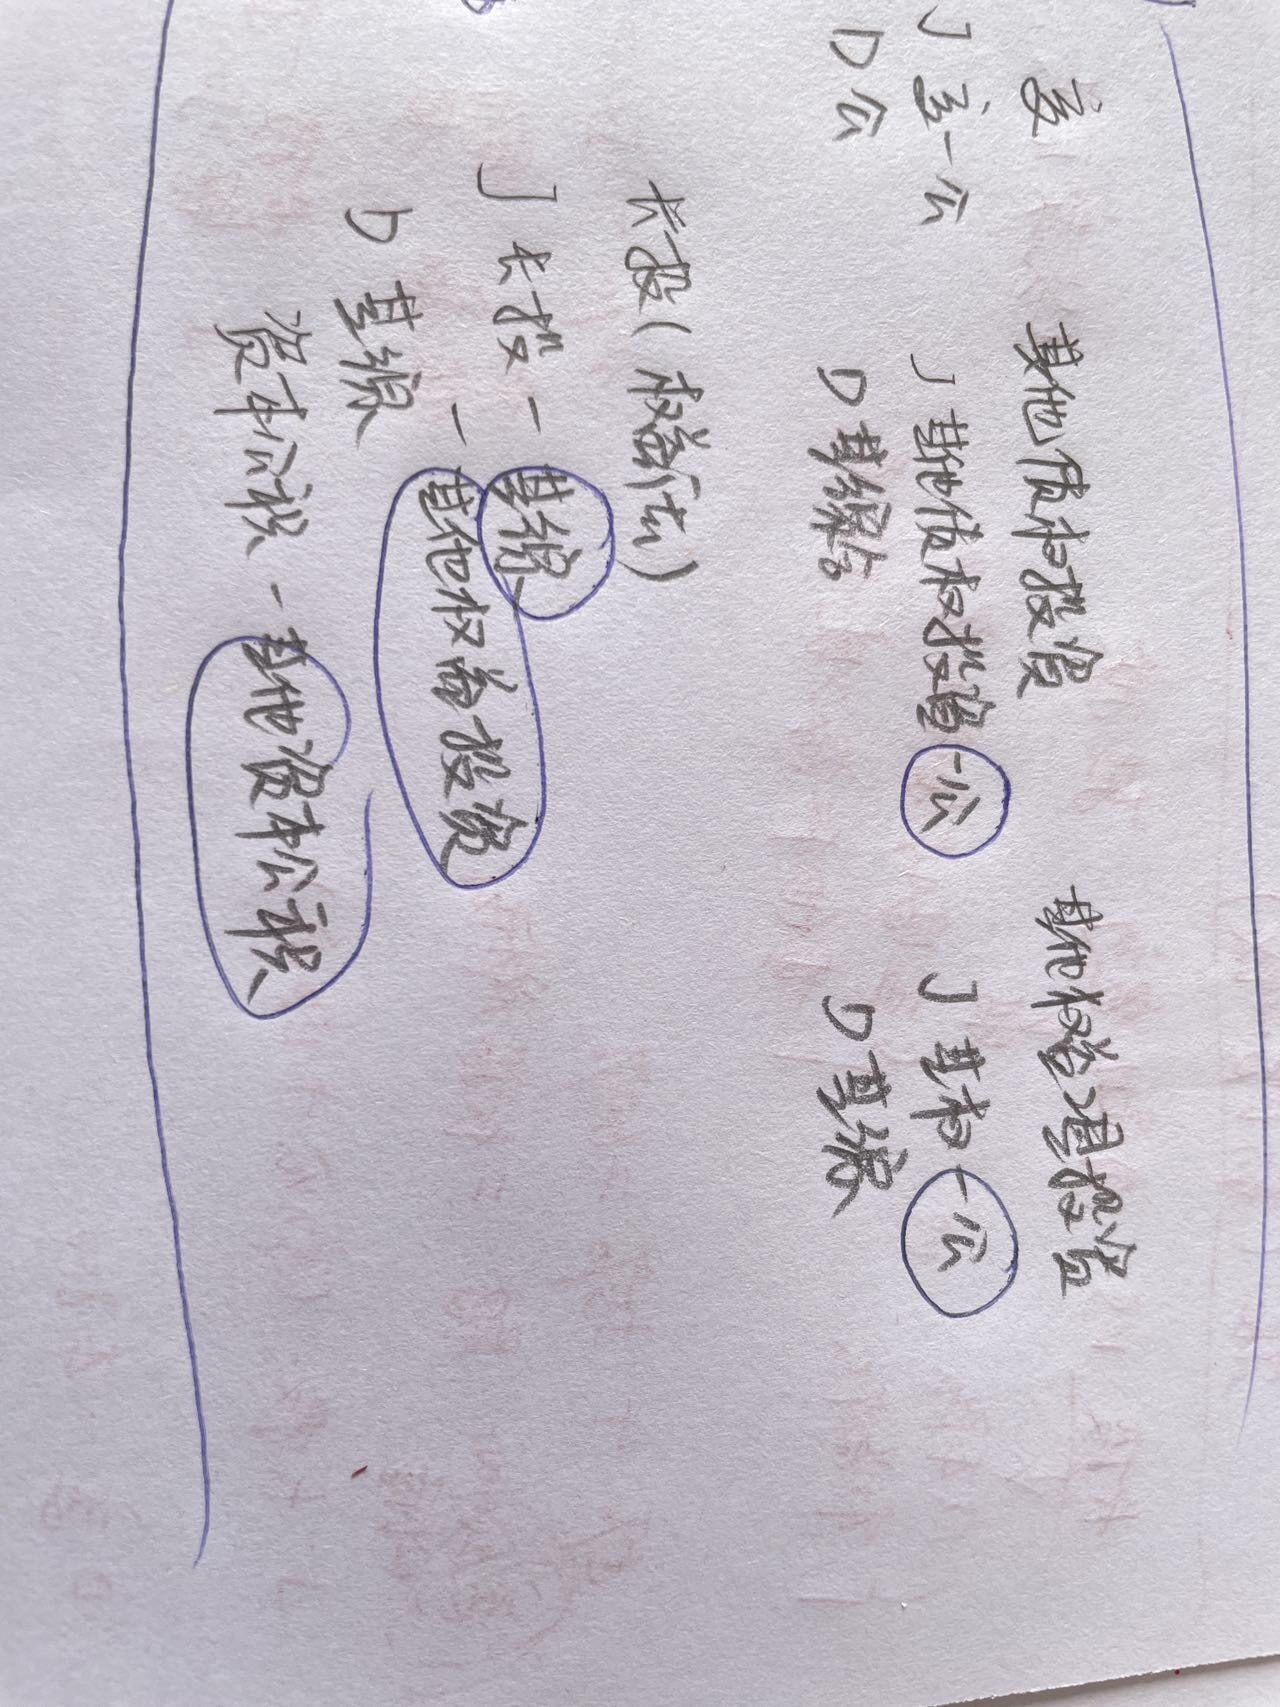 交
J 交一公
D 公
其他债权投资
J 其他债权投资一公
D 其综合
其他权益工具投资
J 其权一公
D 其综
长投(权益法)
J 长投一其综
一其他权益投资
D 其综
资本公积一其他资本公积